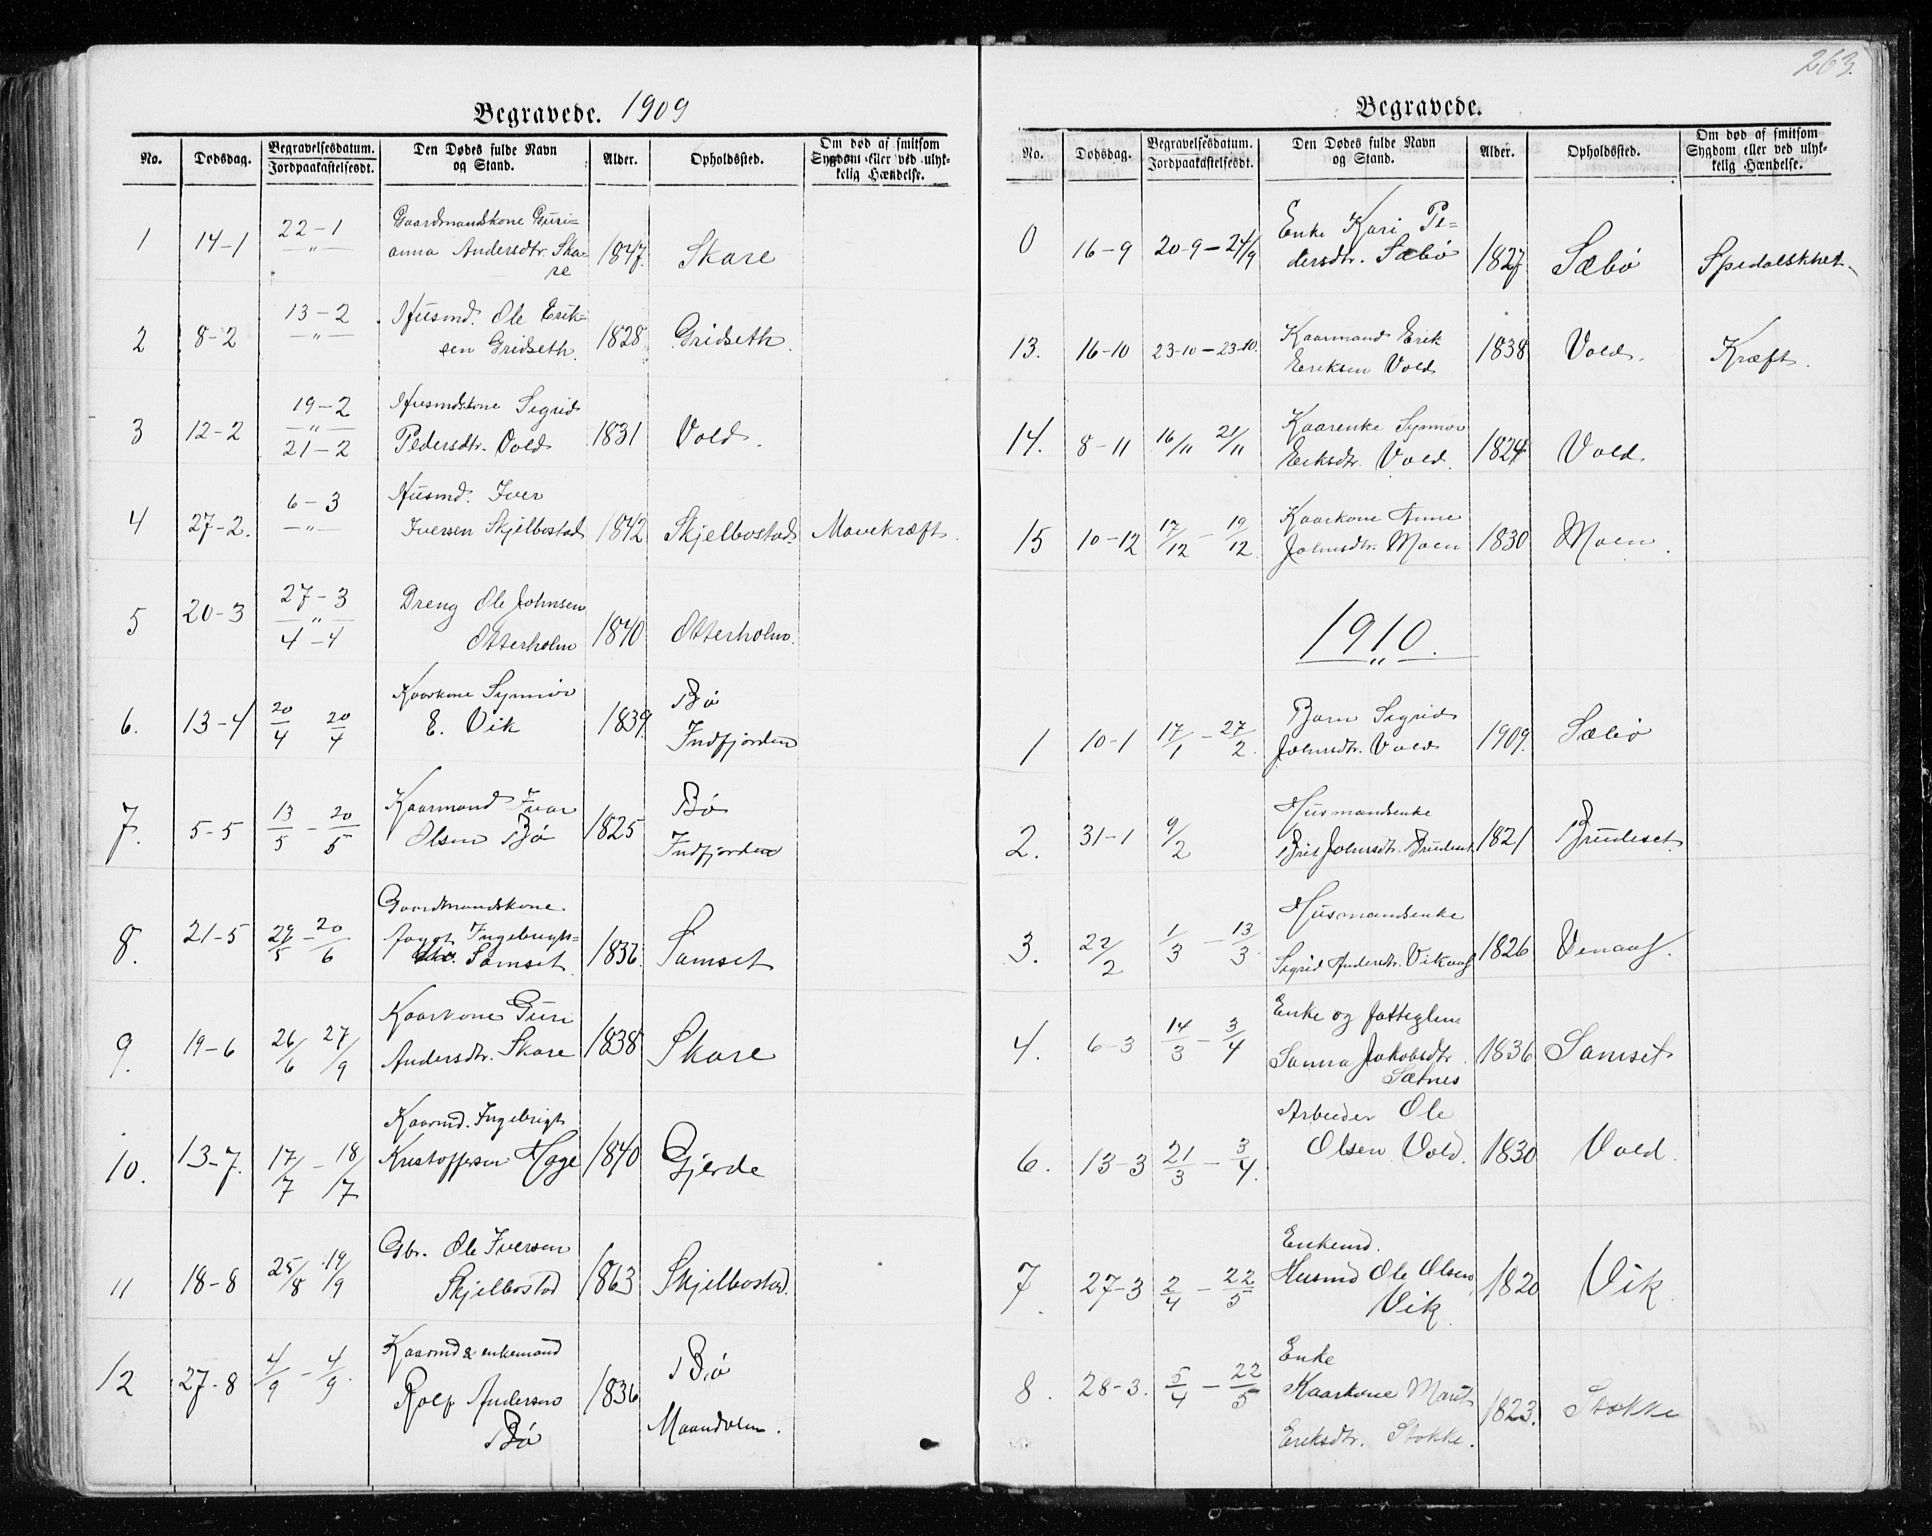 263.
Begravede. 1909
No.
Dødsdag.
Begravelsesdatum.
Jordpaakastelsesdt.
Den Dødes fulde Navn
og Stand.
Alder.
Opholdssted.
Om død af smitsom
Sygdom eller ved ulyk-
kelig Hændelse.
1 14-1 22-1 Gaardmandskone Guri-
-"- anna Andersdtr. Ska- 1847. Skare
re
2 8-2 13-2 Husmd. Ole Erik-
-"- sen Gridseth. 1828 Gridseth.
3 12-2 19-2 Husmdskone Sigrid
-"-
21-2 Pedersdtr. Vold 1831 Vold.
4 27-2. 6-3 Husmd. Iver
-"- Iversen Skjelbostad 1842 Skjelbostad. Mavekræft.
5 20-3 27-3 Dreng Ole Johnsen
-"-
4-4 Otterholm 1840 Otterholm.
6. 13-4 20/4 20/4 Kaarkone Synnøv Bø
E. Vik 1839. Indfjorden
7. 5-5 13/5 - 20/5 Kaarmand Ivar Bø
Olsen Bø 1825 Indfjorden
8. 21-5 29/5 - 20/6 Gaardmandskone
Ingebrigts=
Samset. 1836. Samset
9. 19-6 26/6 27/9 Kaarkone Guri
Andersdtr. Skare 1838 Skare
10. 13-7. 17/7 - 18/7 Kaarmd. Ingebrigt
Kristoffersen Hage 1840 Gjerde
11 18-8 25/8 19/9 Gbr. Ole Iversen
Skjelbostad 1863 Skjelbostad.
12 27-8 4/9 - 4/9. Kaarmd & enkemand Bø
Rolf Andersen 1836 Maandalen.
Bø
Begravede.
No.
Dødsdag.
Begravelsesdatum.
Jordpaakastelsesdt.
Den Dødes fulde Navn
og Stand.
Alder.
Opholdssted.
Om død af smitsom
Sygdom eller ved ulyk-
kelig Hændelse.
0 16-9 20-9 - 24/9 Enke Kari Pe-
dersdtr. Sæbø 1827 Sæbø Spedalskhet.
13. 16-10 23-10-23-10. Kaarmand Erik
Eriksen Vold 1838 Vold. Kræft.
14. 8-11 16/11 21/11 Kaarenke Synnøv
Eriksdtr. Vold. 1824 Vold
15 10-12 17/12 - 19/12 Kaarkone Anne
Johnsdtr. Moen 1830 Moen.
1910.
1 10-1 17/1 - 27/2 Barn Sigrid
Johnsdtr. Vold 1909. Sæbø
2. 31-1 9/2 Husmandsenke
Brit Johnsdtr. Brudeset 1821 Brudeset.
3. 22/2 1/3 - 13/3 Husmandsenke
Sigrid Andersdtr. 1826
4. 6-3 14/3 - 3/4 Enke og fattiglem
Sanna Jakobsdtr. 1836 Samset
Sætnes
6. 13-3 21/3 - 3/4. Arbeider Ole
Olsen Vold. 1830 Vold.
7. 27-3 2/4 - 22/5 Enkemd.
Husmd Ole Olsen 1820 Vik
Vik.
8. 28-3. 5/4 - 22/5 Enke
Kaarkone Marit 1823. Stokke
Eriksdtr. Stokke.